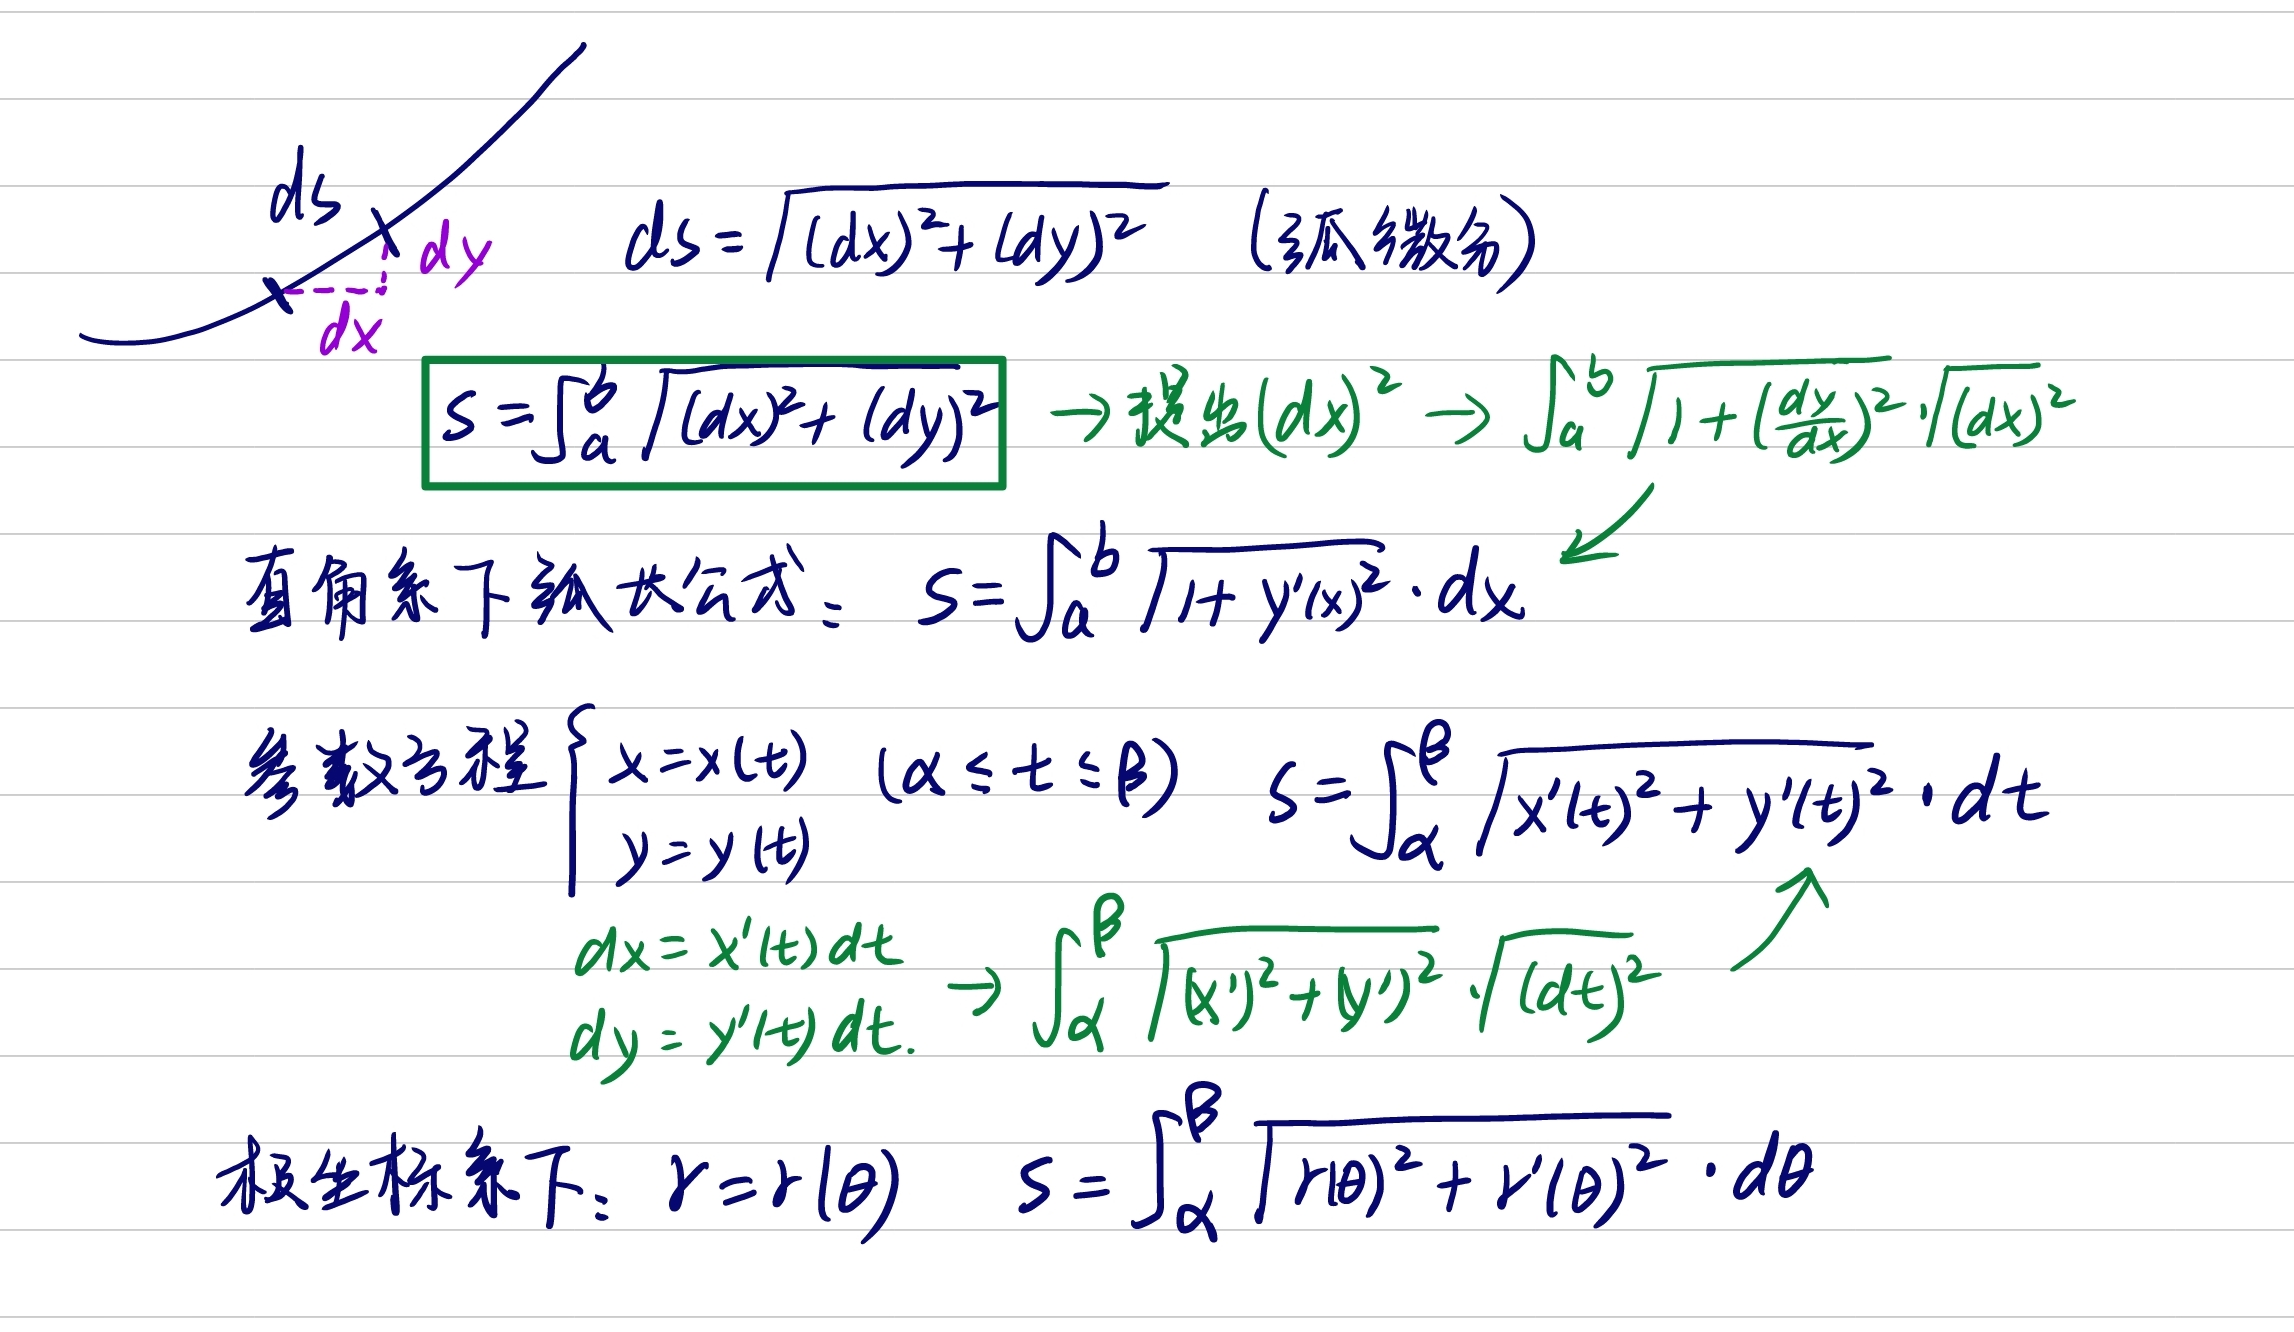 ds
dy
dx
ds = √((dx)² + (dy)²) (弧微分)
s = ∫ₐᵇ √((dx)² + (dy)²) → 提出(dx)² → ∫ₐᵇ √(1 + (dy/dx)²) · √((dx)²)
直角系下弧长公式: s = ∫ₐᵇ √(1 + y'(x)²) · dx
参数方程 { x = x(t) (α ≤ t ≤ β) s = ∫_α^β √(x'(t)² + y'(t)²) · dt
y = y(t)
dx = x'(t) dt
dy = y'(t) dt. → ∫_α^β √((x')² + (y')²) · √((dt)²)
极坐标系下: r = r(θ) s = ∫_α^β √(r(θ)² + r'(θ)²) · dθ